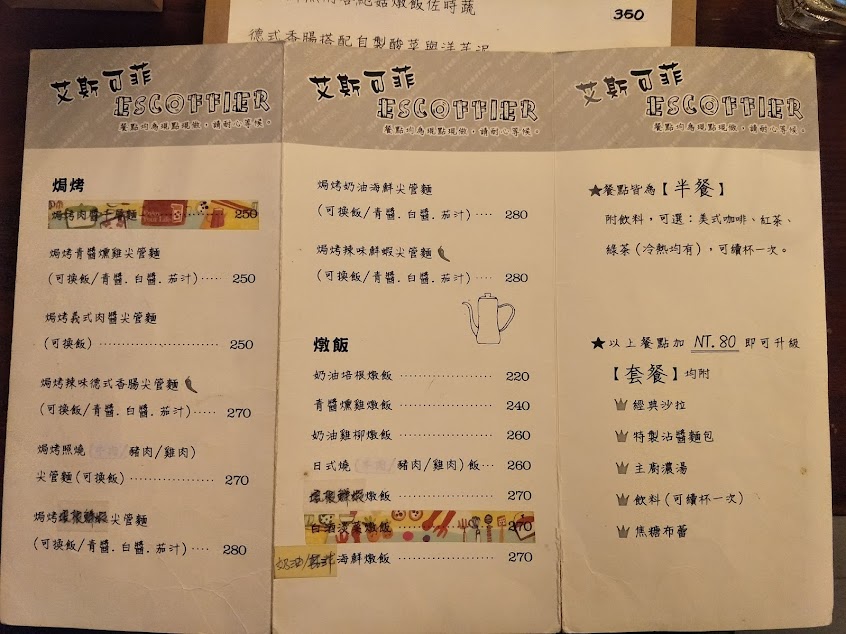 350
德式香腸搭配自製酸菜與洋芋泥
艾斯可菲
ESCOFFIER
餐點均為現點現做，請耐心等候。
焗烤
焗烤肉醬千層麵 250
焗烤青醬燻雞尖管麵
(可換飯/青醬.白醬.茄汁)····· 250
焗烤義式肉醬尖管麵
(可換飯) ························ 250
焗烤辣味德式香腸尖管麵
(可換飯/青醬.白醬.茄汁)····· 270
焗烤照燒 /豬肉/雞肉)
尖管麵(可換飯) ················ 270
焗烤 尖管麵
(可換飯/青醬.白醬.茄汁) ···· 280
艾斯可菲
ESCOFFIER
餐點均為現點現做，請耐心等候。
焗烤奶油海鮮尖管麵
(可換飯/青醬.白醬.茄汁) ···· 280
焗烤辣味鮮蝦尖管麵
(可換飯/青醬.白醬.茄汁) ···· 280
燉飯
奶油培根燉飯 ·················· 220
青醬燻雞燉飯 ·················· 240
奶油雞柳燉飯 ·················· 260
日式燒 /豬肉/雞肉)飯··· 260
燉飯 ·················· 270
燉飯 270
奶油/ 海鮮燉飯 ·················· 270
艾斯可菲
ESCOFFIER
餐點均為現點現做，請耐心等候。
★餐點皆為【半餐】
附飲料，可選：美式咖啡、紅茶、
綠茶(冷熱均有)，可續杯一次。
★以上餐點加 NT.80 即可升級
【套餐】均附
經典沙拉
特製沾醬麵包
主廚濃湯
飲料(可續杯一次)
焦糖布蕾